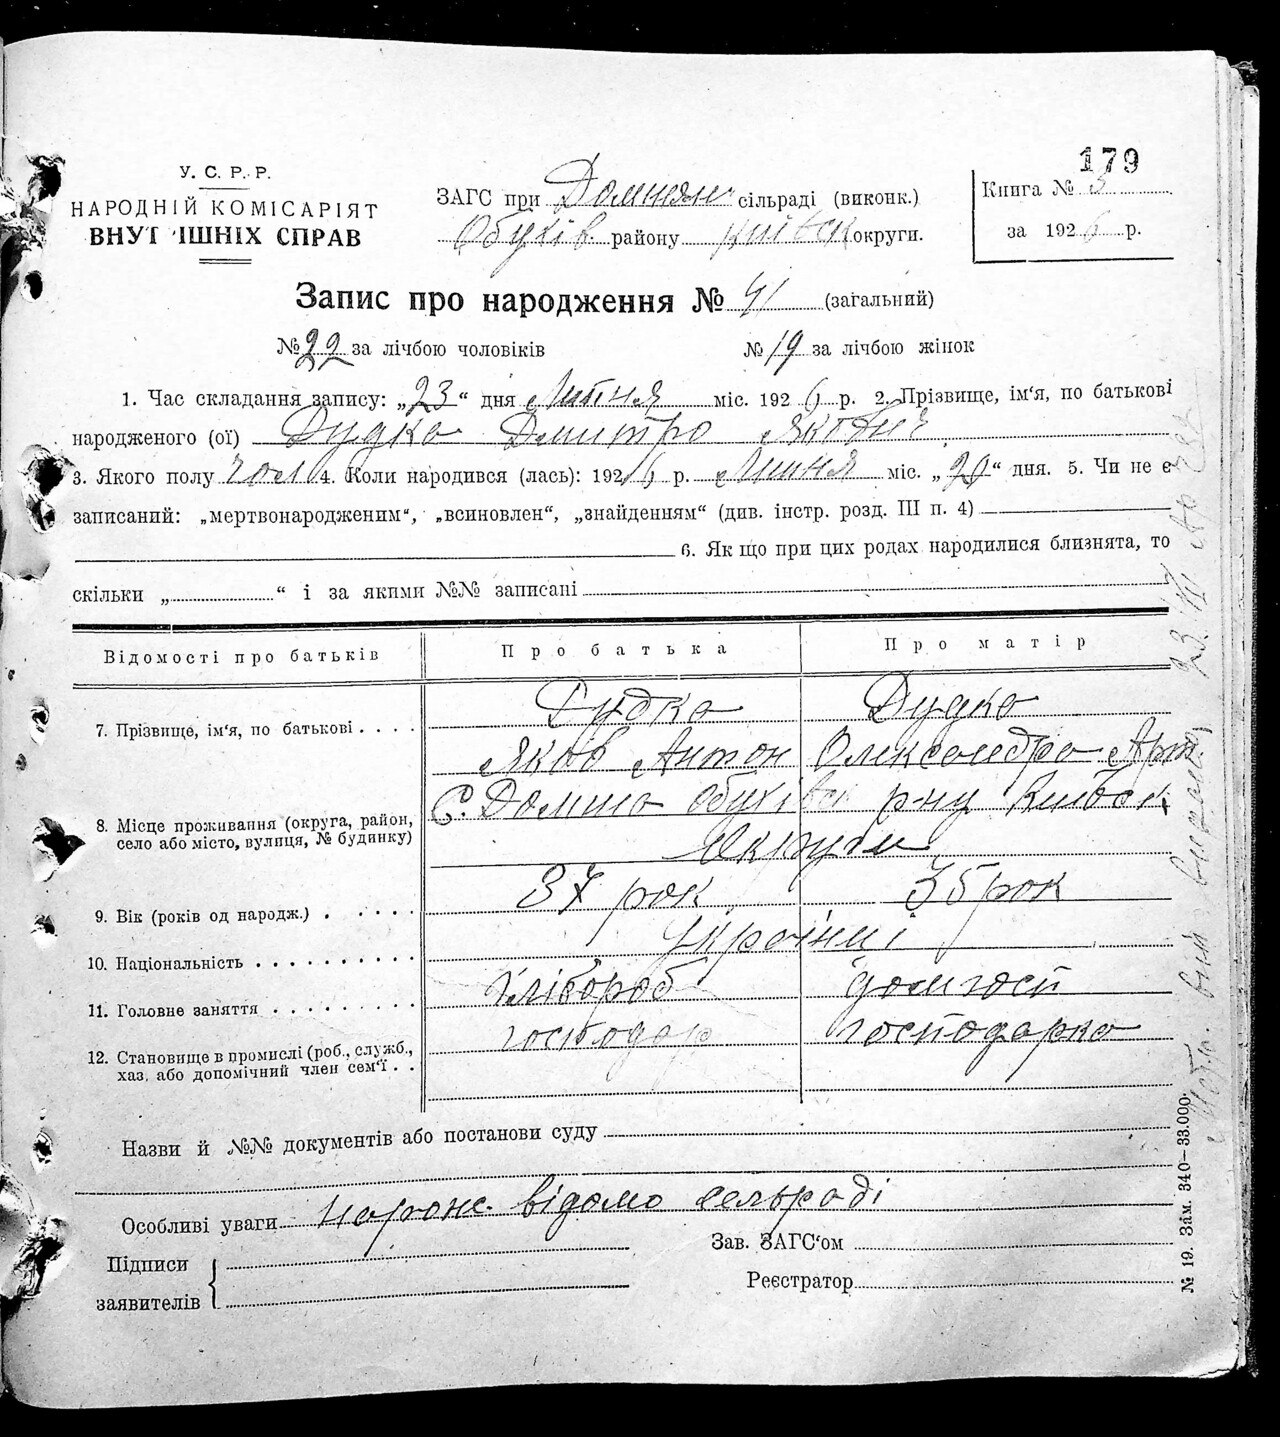 179
У. С. Р. Р.
НАРОДНІЙ КОМІСАРІЯТ
ВНУТ ІШНІХ СПРАВ
ЗАГС при сільраді (виконк.)
Обухів. району Київск округи.
Книга № 3
за 1926 р.
Запис про народження № 41 (загальний)
№ 22 за лічбою чоловіків № 19 за лічбою жінок
1. Час складання запису: „23“ дня Липня міс. 1926 р. 2. Прізвище, ім‘я, по батькові
народженого (ої) Дудко Дмитро Якович
3. Якого полу чол 4. Коли народився (лась): 1926 р. Липня міс. „20“ дня. 5. Чи не є
записаний: „мертвонародженим“, „всиновлен“, „знайденням“ (див. інстр. розд. III п. 4)
6. Як що при цих родах народилися близнята, то
скільки „ “ і за якими №№ записані
Відомості про батьків Про батька Про матір
7. Прізвище, ім‘я, по батькові Дудко Дудко
Яков Антон Олександра Арт.
8. Місце проживання (округа, район, село або місто, вулиця, № будинку) С. Обухівск р-ну Київск
Округи
9. Вік (років од народж.) 37 рок 35 рок
10. Національність Українці
11. Головне заняття Хлібороб дом госп
12. Становище в промислі (роб., служб., хаз. або допомічний член сем‘ї господар господарка
Назви й №№ документів або постанови суду
Особливі уваги народж. відомо сельраді
Підписи
заявителів
Зав. ЗАГС‘ом
Реєстратор
№ 19. Зам. 340—33.000.